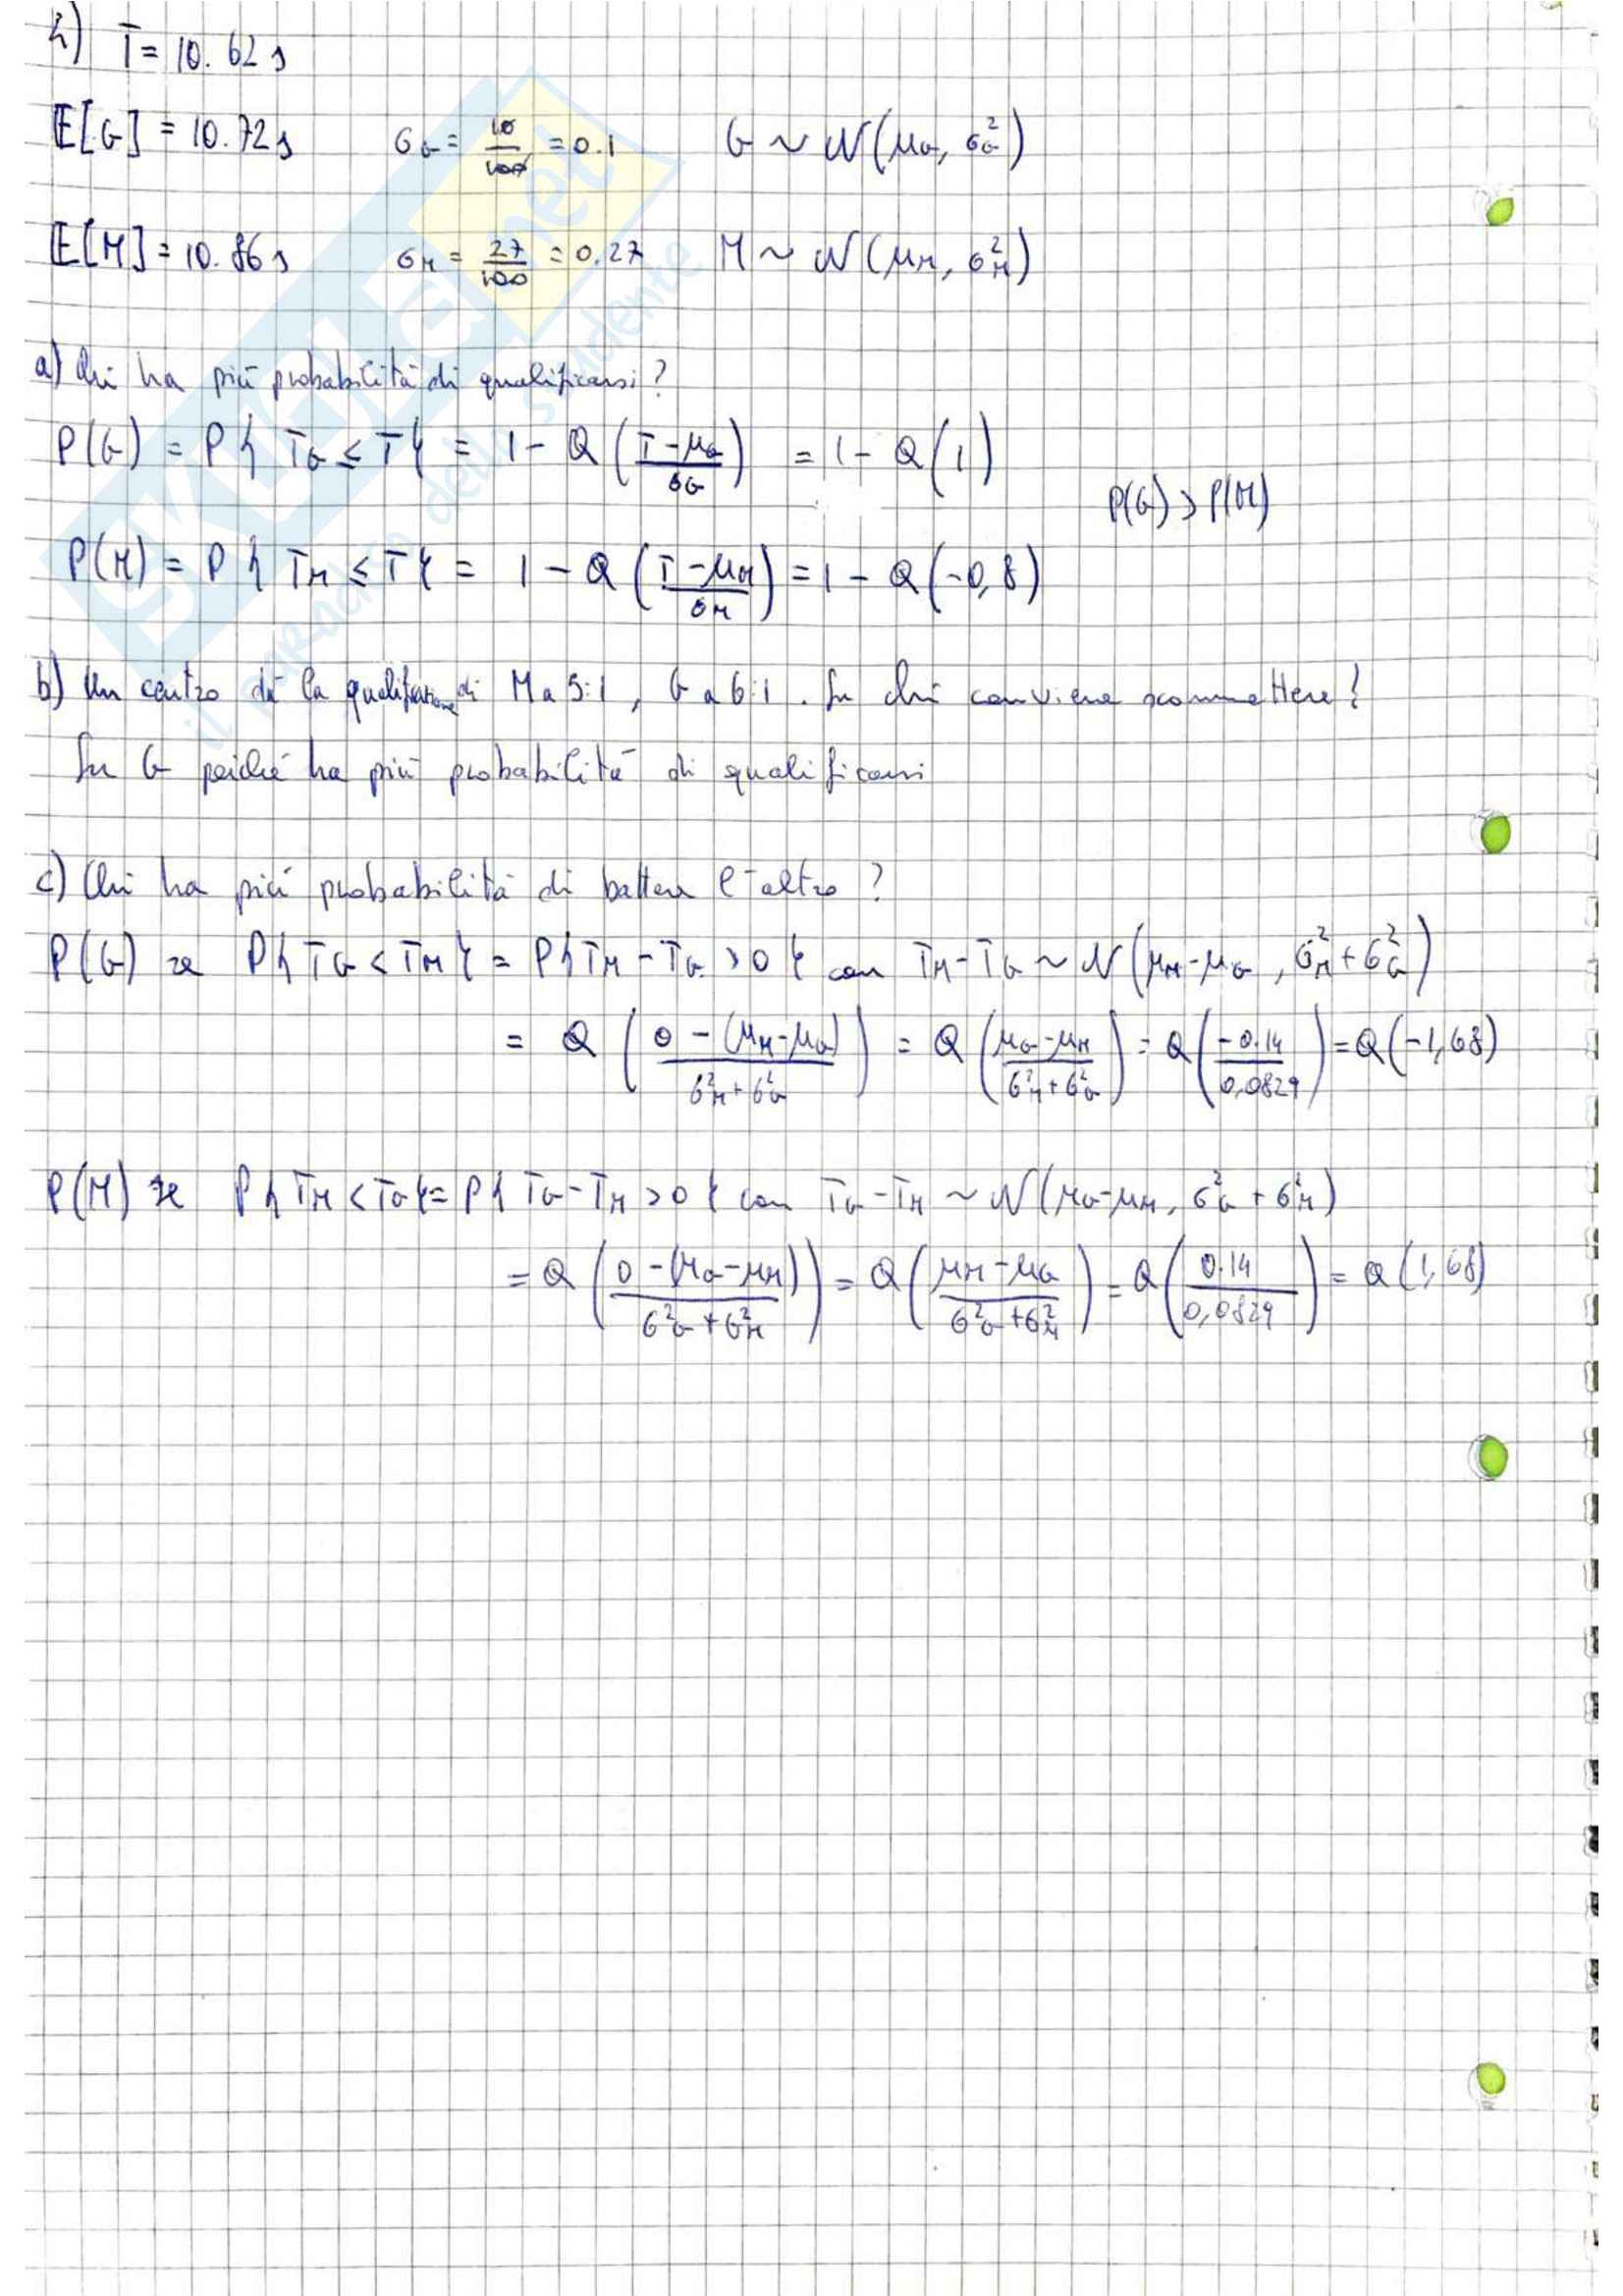 4) T = 10.62 s
E[G] = 10.72 s σG = 10/100 = 0.1 G ~ N(μG, σG²)
E[M] = 10.86 s σM = 27/100 = 0.27 M ~ N(μM, σM²)
a) Chi ha più probabilità di qualificarsi?
P(G) = P{TG ≤ T} = 1 - Q((T - μG)/σG) = 1 - Q(1)
P(G) > P(M)
P(M) = P{TM ≤ T} = 1 - Q((T - μM)/σM) = 1 - Q(-0,8)
b) Un centro dà la qualificazione di M a 5:1, G a 6:1. Su chi conviene scommettere?
Su G poiché ha più probabilità di qualificarsi
c) Chi ha più probabilità di battere l'altro?
P(G) se P{TG < TM} = P{TM - TG > 0} con TM - TG ~ N(μM - μG, σM² + σG²)
= Q((0 - (μM - μG))/(σM² + σG²)) = Q((μG - μM)/(σM² + σG²)) = Q(-0.14/0,0829) = Q(-1,68)
P(M) se P{TM < TG} = P{TG - TM > 0} con TG - TM ~ N(μG - μM, σG² + σM²)
= Q((0 - (μG - μM))/(σG² + σM²)) = Q((μM - μG)/(σG² + σM²)) = Q(0.14/0,0829) = Q(1,68)
SKUOLA.net
il paradiso dello studente